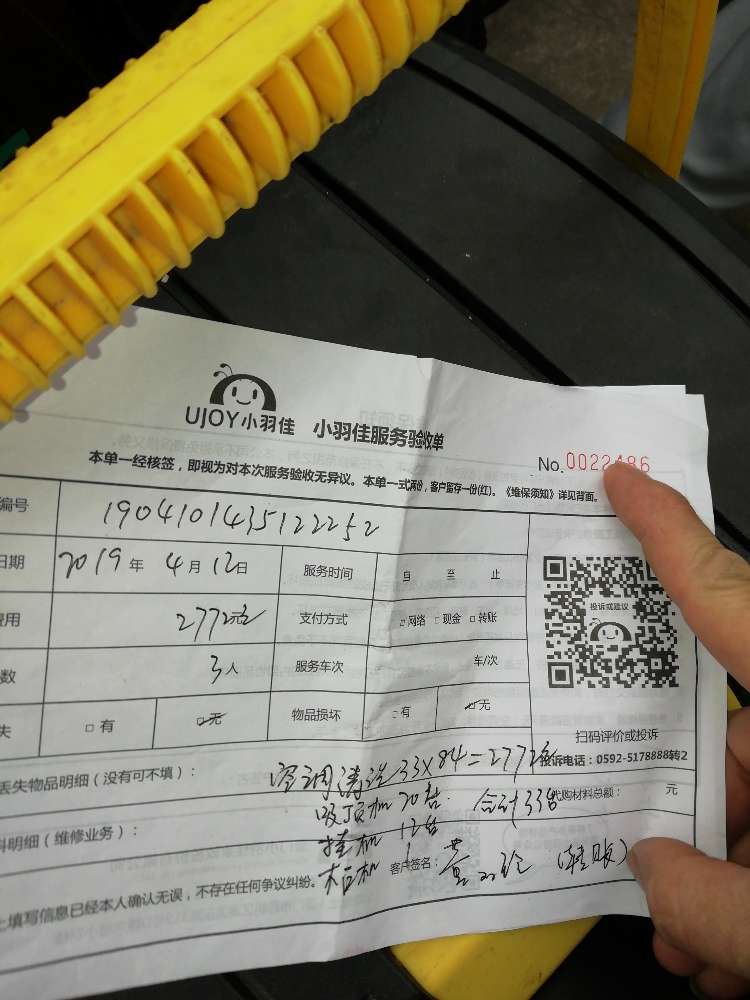 UJOY小羽佳 小羽佳服务验收单
No.0022486
本单一经核签，即视为对本次服务验收无异议。本单一式两份，客户留存一份(红)。《维保须知》详见背面。
编号 1904101435122252
日期 2019年4月12日 服务时间 自 至 止
费用 2772元 支付方式 □网络 □现金 □转账
数 3人 服务车次 车/次
失 □有 □无 物品损坏 □有 □无
投诉或建议
扫码评价或投诉
投诉电话：0592-5178888转2
丢失物品明细（没有可不填）： 空调清洗33×84=2772元
吸顶机20台 合计33台
代购材料总额： 元
料明细（维修业务）： 挂机 12台
柜机 1
客户签名： 黄 (转账)
上填写信息已经本人确认无误，不存在任何争议纠纷。